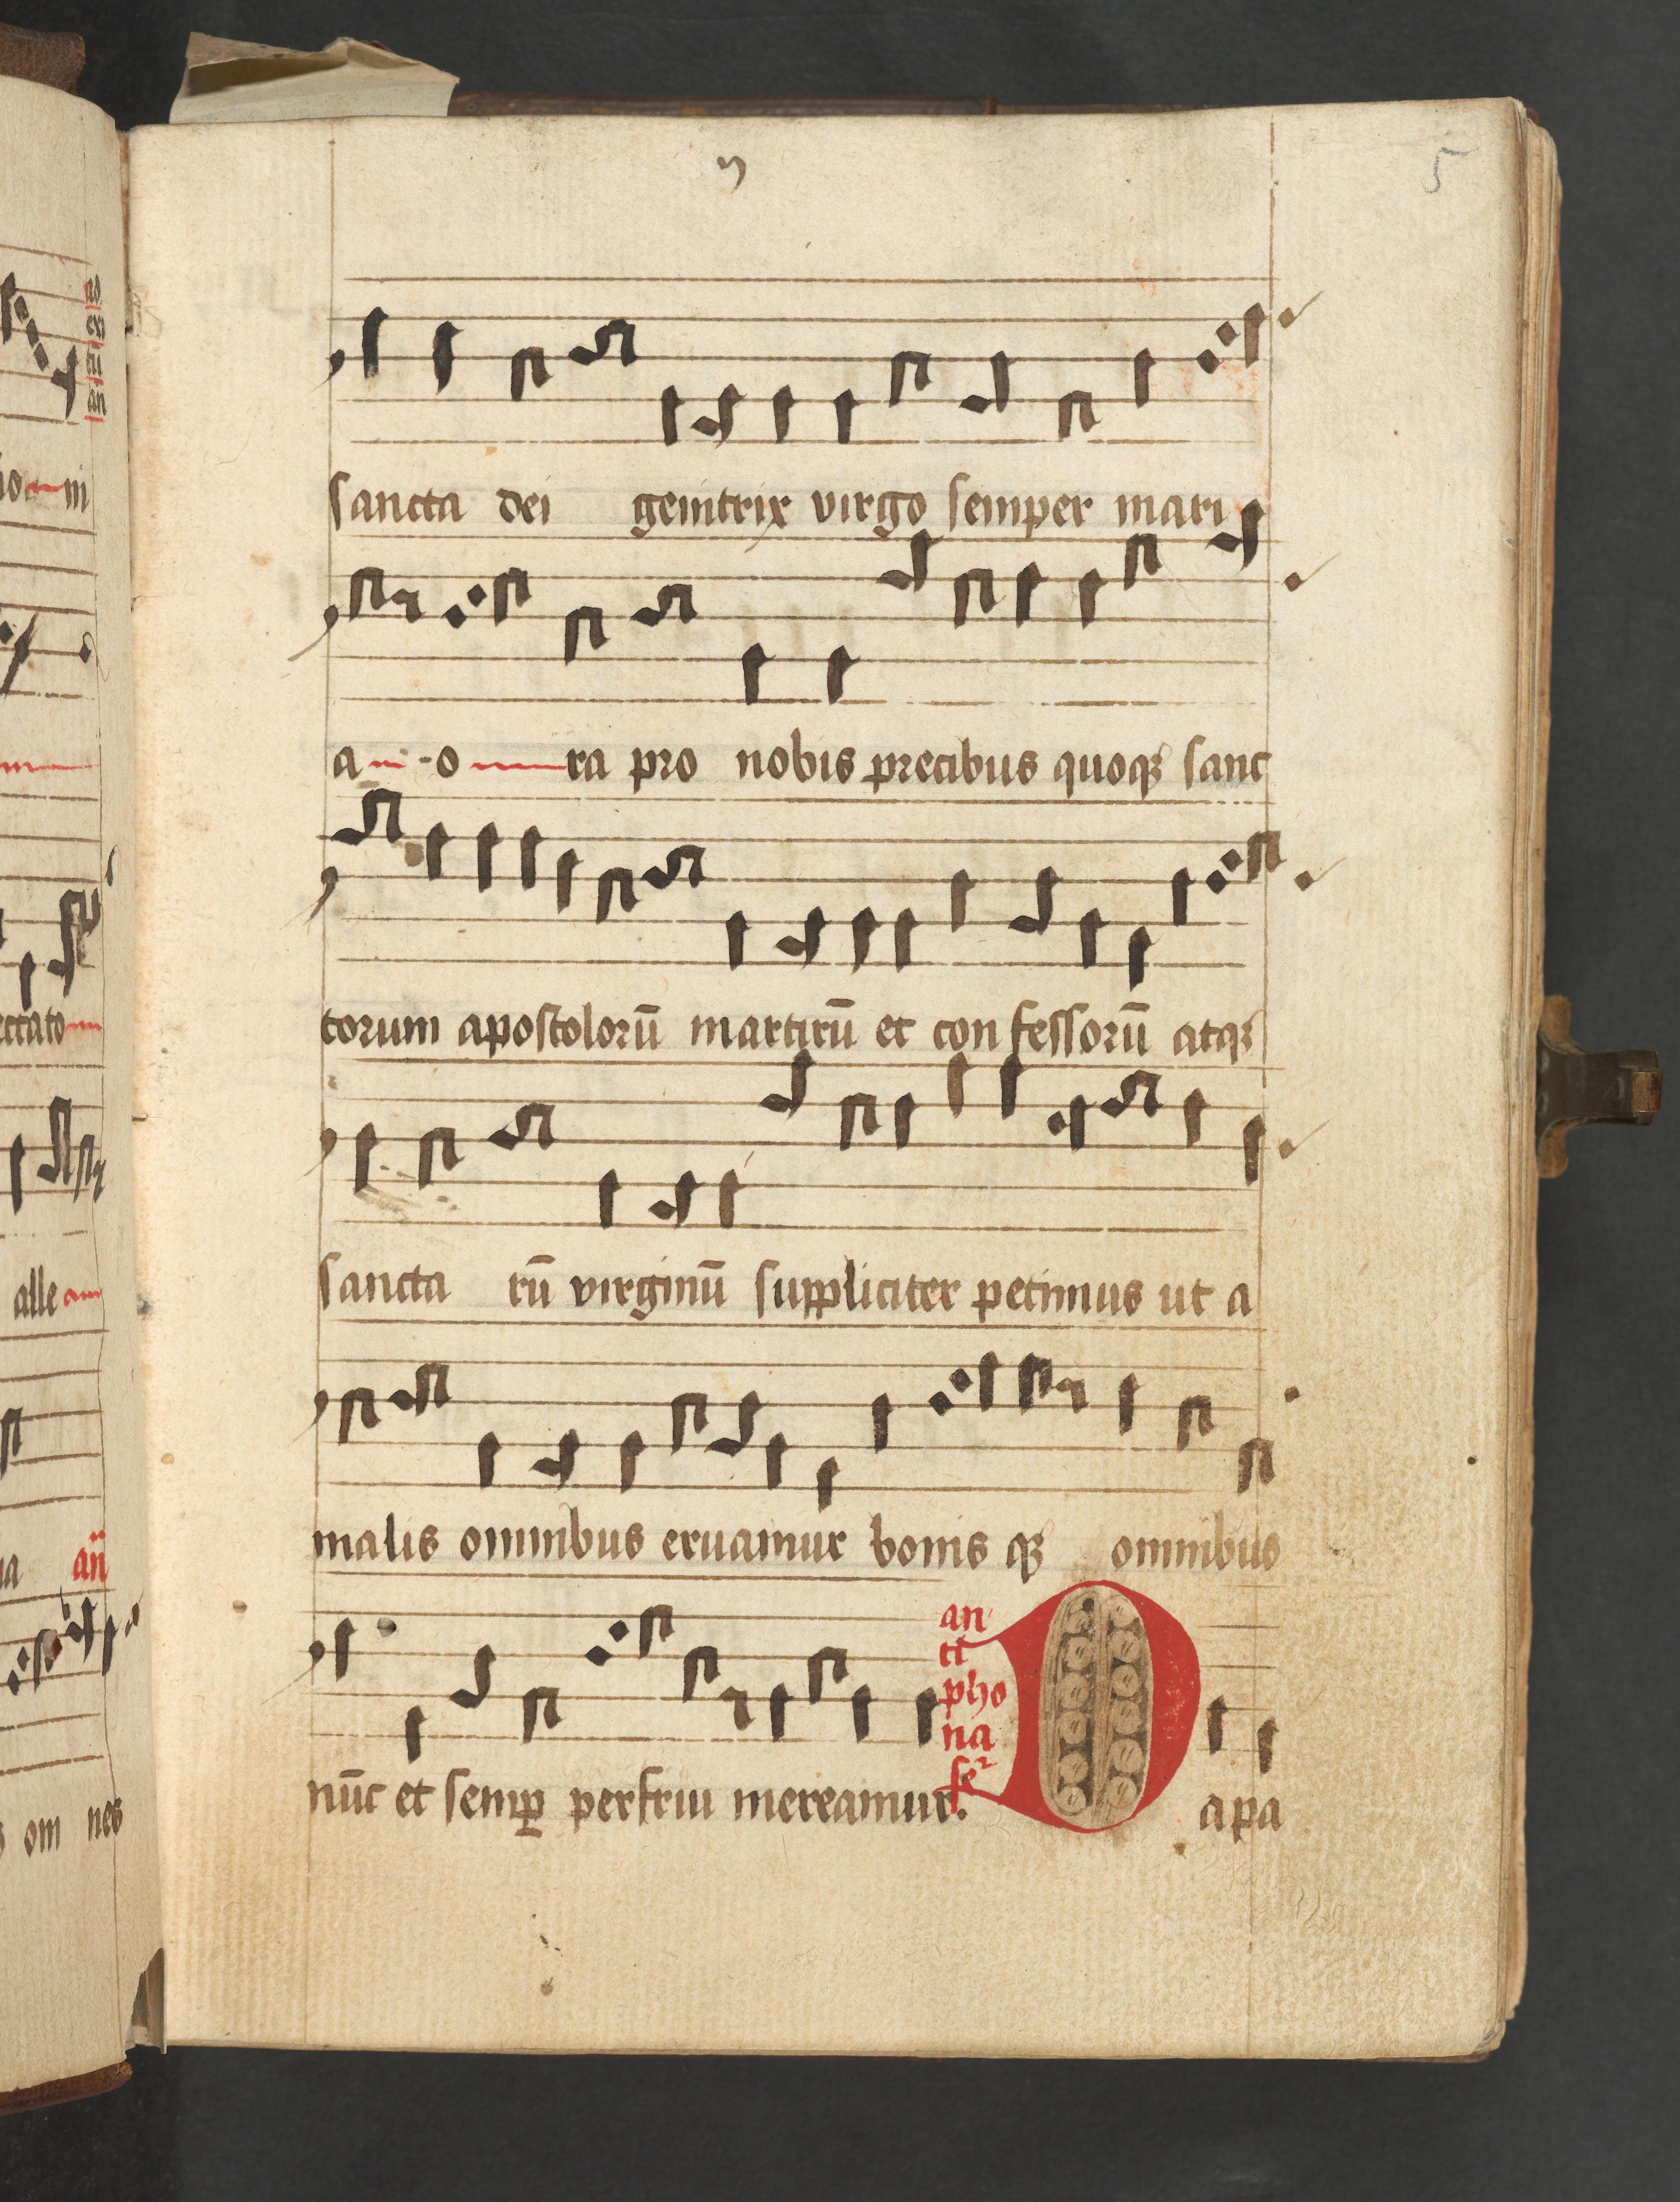 5
sancta dei genitrix virgo semper mari
a o ra pro nobis precibus quoqꝫ sanc
torum apostolorū martirū et con fessorū atqꝫ
sancta rū virginū suppliciter petimus ut a
malis omnibus eruamur bonis qꝫ omnibus
an
ti
pho
na
nūc et semꝑ perfrui mereamur. O apa
no
en
tu
an
eccato
alle
an̄
om nes